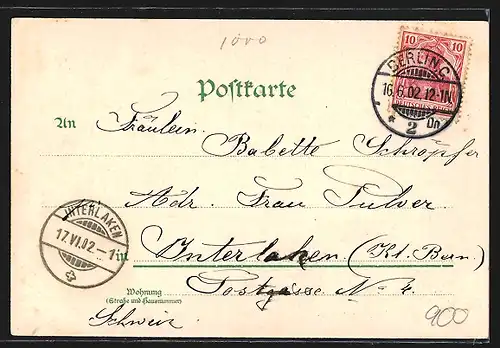 1000
10 10
DEUTSCHES REICH
BERLIN C
16.6.02.12-1N.
* 2 Dn
Postkarte
An Fräulein
Babette Schröpfer
Adr. Frau Pulver
INTERLAKEN
17.VI.02.-1
in Interlaken (Kt. Bern)
Wohnung
(Straße und Hausnummer)
Postgasse No 4.
Schweiz
900